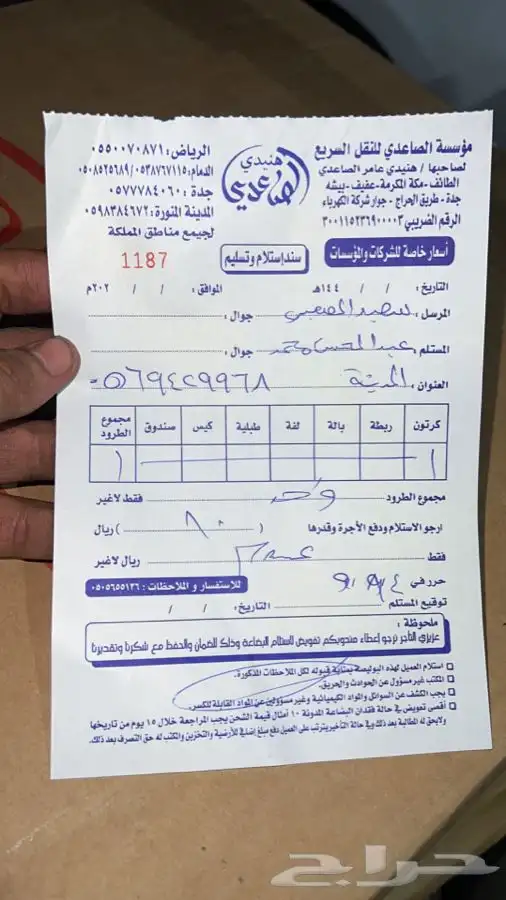 مؤسسة الصاعدي للنقل السريع
لصاحبها / هنيدي عامر الصاعدي
الطائف - مكة المكرمة - عفيف - بيشه
جدة - طريق الحراج - جوار شركة الكهرباء
الرقم الضريبي ٣٠٠١١٥٢٣٦٩٠٠٠٠٣
هنيدي
الصاعدي
الرياض : ٠٥٥٠٠٧٠٨٧١
الدمام : ٠٥٣٨٧٦٧١١٥/٠٥٠٨٥٢٥٦٨٩
جدة : ٠٥٧٧٧٨٤٠٦٠
المدينة المنورة : ٠٥٩٨٣٨٤٦٧٢
لجميع مناطق المملكة
أسعار خاصة للشركات والمؤسسات
سند إستلام وتسليم
1187
التاريخ : / / ١٤٤هـ الموافق : / / ٢٠٢م
المرسل : سعيد جوال :
المستلم : عبد المحسن محمد جوال :
العنوان : المدينة ٠٥٦٩٤٢٩٩٦٨
كرتون ربطة بالة لفة طبلية كيس صندوق مجموع الطرود
١ ١
مجموع الطرود واحد فقط لاغير
ارجو الاستلام ودفع الأجرة وقدرها ( ) ريال
فقط ريال لاغير
حرر في ٤ / ٨ / ٩
للاستفسار و الملاحظات : ٠٥٠٥٦٥٥١٣٦
توقيع المستلم التاريخ : / /
ملحوظة :
عزيزي التأجر نرجو إعطاء مندوبكم تفويض لاستلام البضاعة وذلك للضمان والحفظ مع شكرنا وتقديرنا
استلام العميل لهذه البوليصة بمثابة قبوله لكل الملاحظات المذكورة.
المكتب غير مسؤول عن الحوادث والحريق.
يجب الكشف عن السوائل والمواد الكيميائية وغير مسؤولين عن المواد القابلة للكسر.
أقصى تعويض في حالة فقدان البضاعة المدونة ١٠ أمثال قيمة الشحن يجب المراجعة خلال ١٥ يوم من تاريخها
ولايحق له المطالبة بعد ذلك وفي حالة التأخير يترتب على العميل دفع مبلغ إضافي للأرضية والتخزين والمكتب له حق التصرف بعد ذلك.
حراج